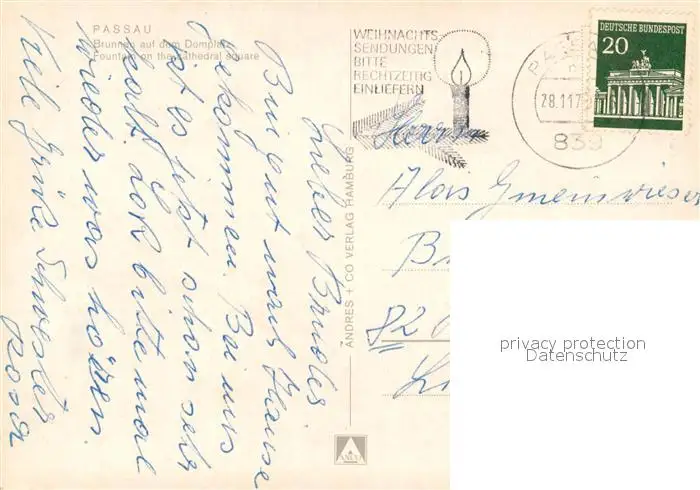 PASSAU
Brunnen auf dem Domplatz
Fountain on the cathedral square
Lieber Bruder
Bin gut nach Hause
gekommen. Bei uns
ist es jetzt schon sehr
kalt. Laß bitte mal
wieder was hören.
Viele Grüße Schwester
Rosa
ANDRES + CO VERLAG HAMBURG
WEIHNACHTS-
SENDUNGEN
BITTE
RECHTZEITIG
EINLIEFERN
28.11.7
839
DEUTSCHE BUNDESPOST
20
Herrn
Alois Gmeinwieser
B
82
privacy protection
Datenschutz